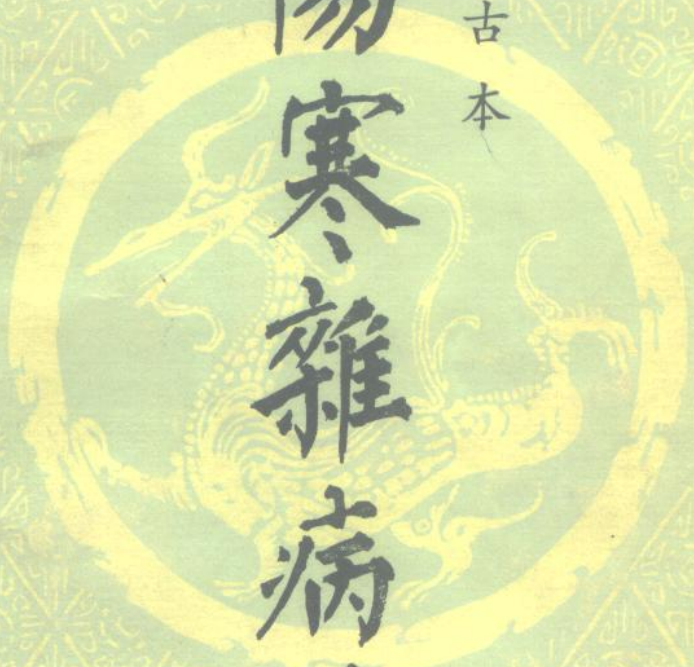 古本
寒雜病